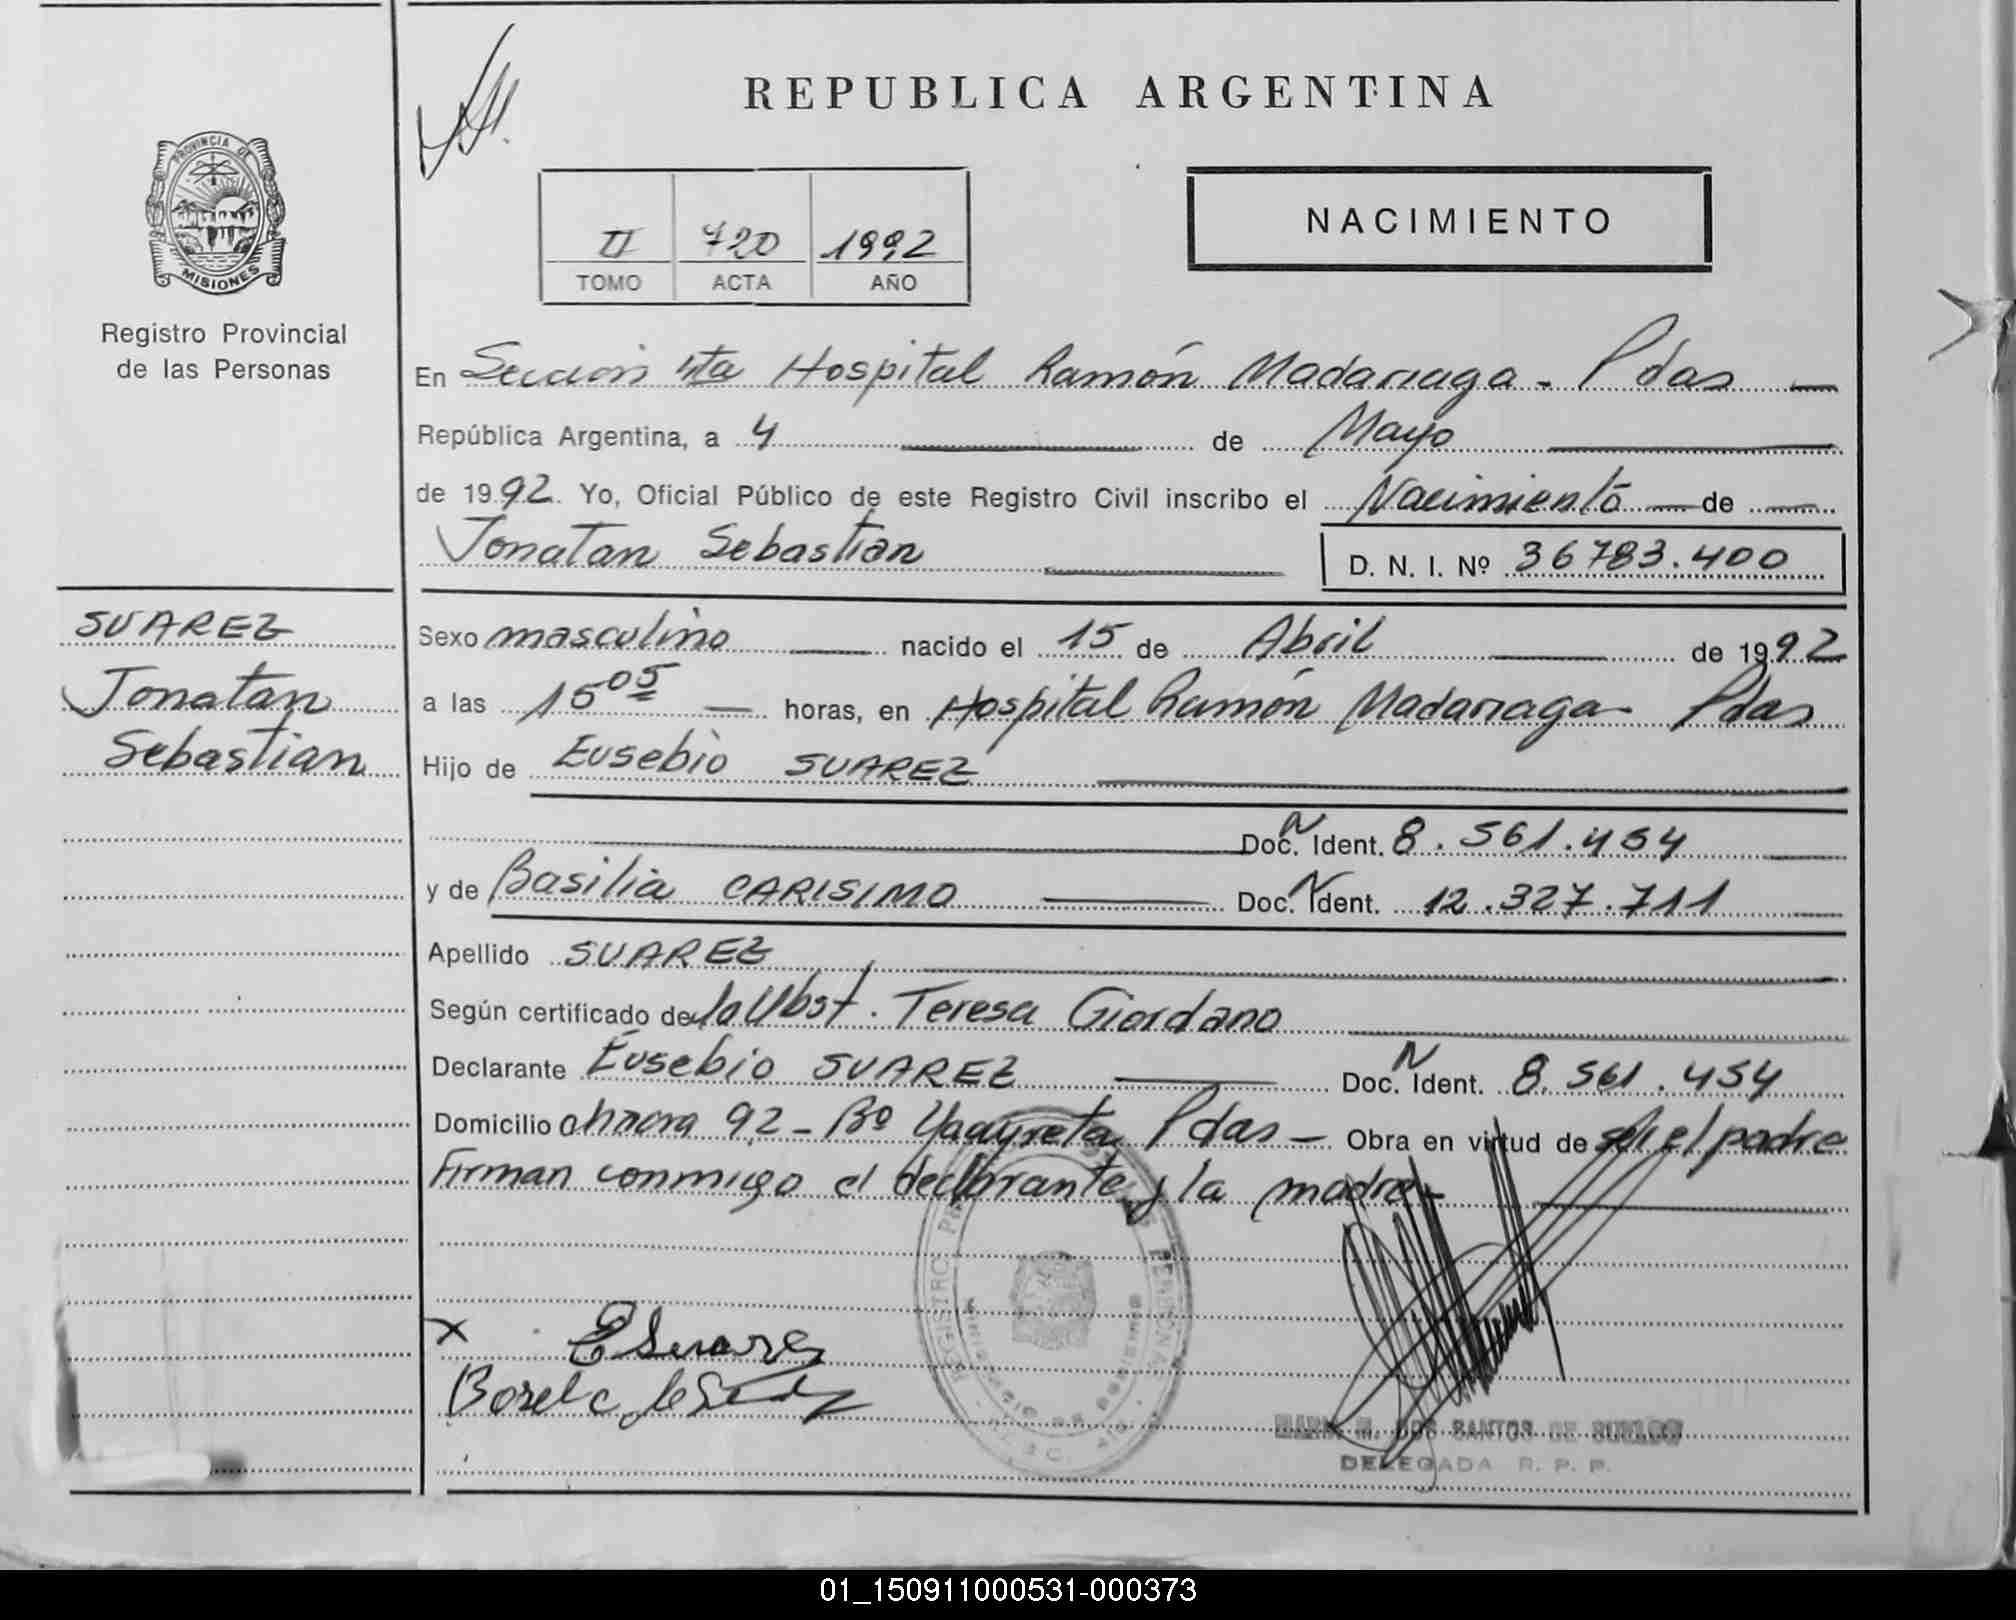 REPUBLICA ARGENTINA
PROVINCIA DE
MISIONES
Registro Provincial
de las Personas
II 720 1992
TOMO ACTA AÑO
NACIMIENTO
En Sección 4ta Hospital Ramón Madariaga - Pdas
República Argentina, a 4 de Mayo
de 1992. Yo, Oficial Público de este Registro Civil inscribo el Nacimiento de
Jonatan Sebastian
D. N. I. Nº 36783.400
SUAREZ
Jonatan
Sebastian
Sexo masculino nacido el 15 de Abril de 1992
a las 15 05 horas, en Hospital Ramón Madariaga - Pdas
Hijo de Eusebio SUAREZ
Doc. N Ident. 8.561.454
y de Basilia CARISIMO Doc. N Ident. 12.327.711
Apellido SUAREZ
Según certificado de la Obst. Teresa Giordano
Declarante Eusebio SUAREZ Doc. N Ident. 8.561.454
Domicilio chacra 92 - Bº Yacyreta Pdas - Obra en virtud de ser el padre
Firman conmigo el declarante y la madre-
x ESuarez
DOS SANTOS DE
DELEGADA R. P. P.
01_150911000531-000373